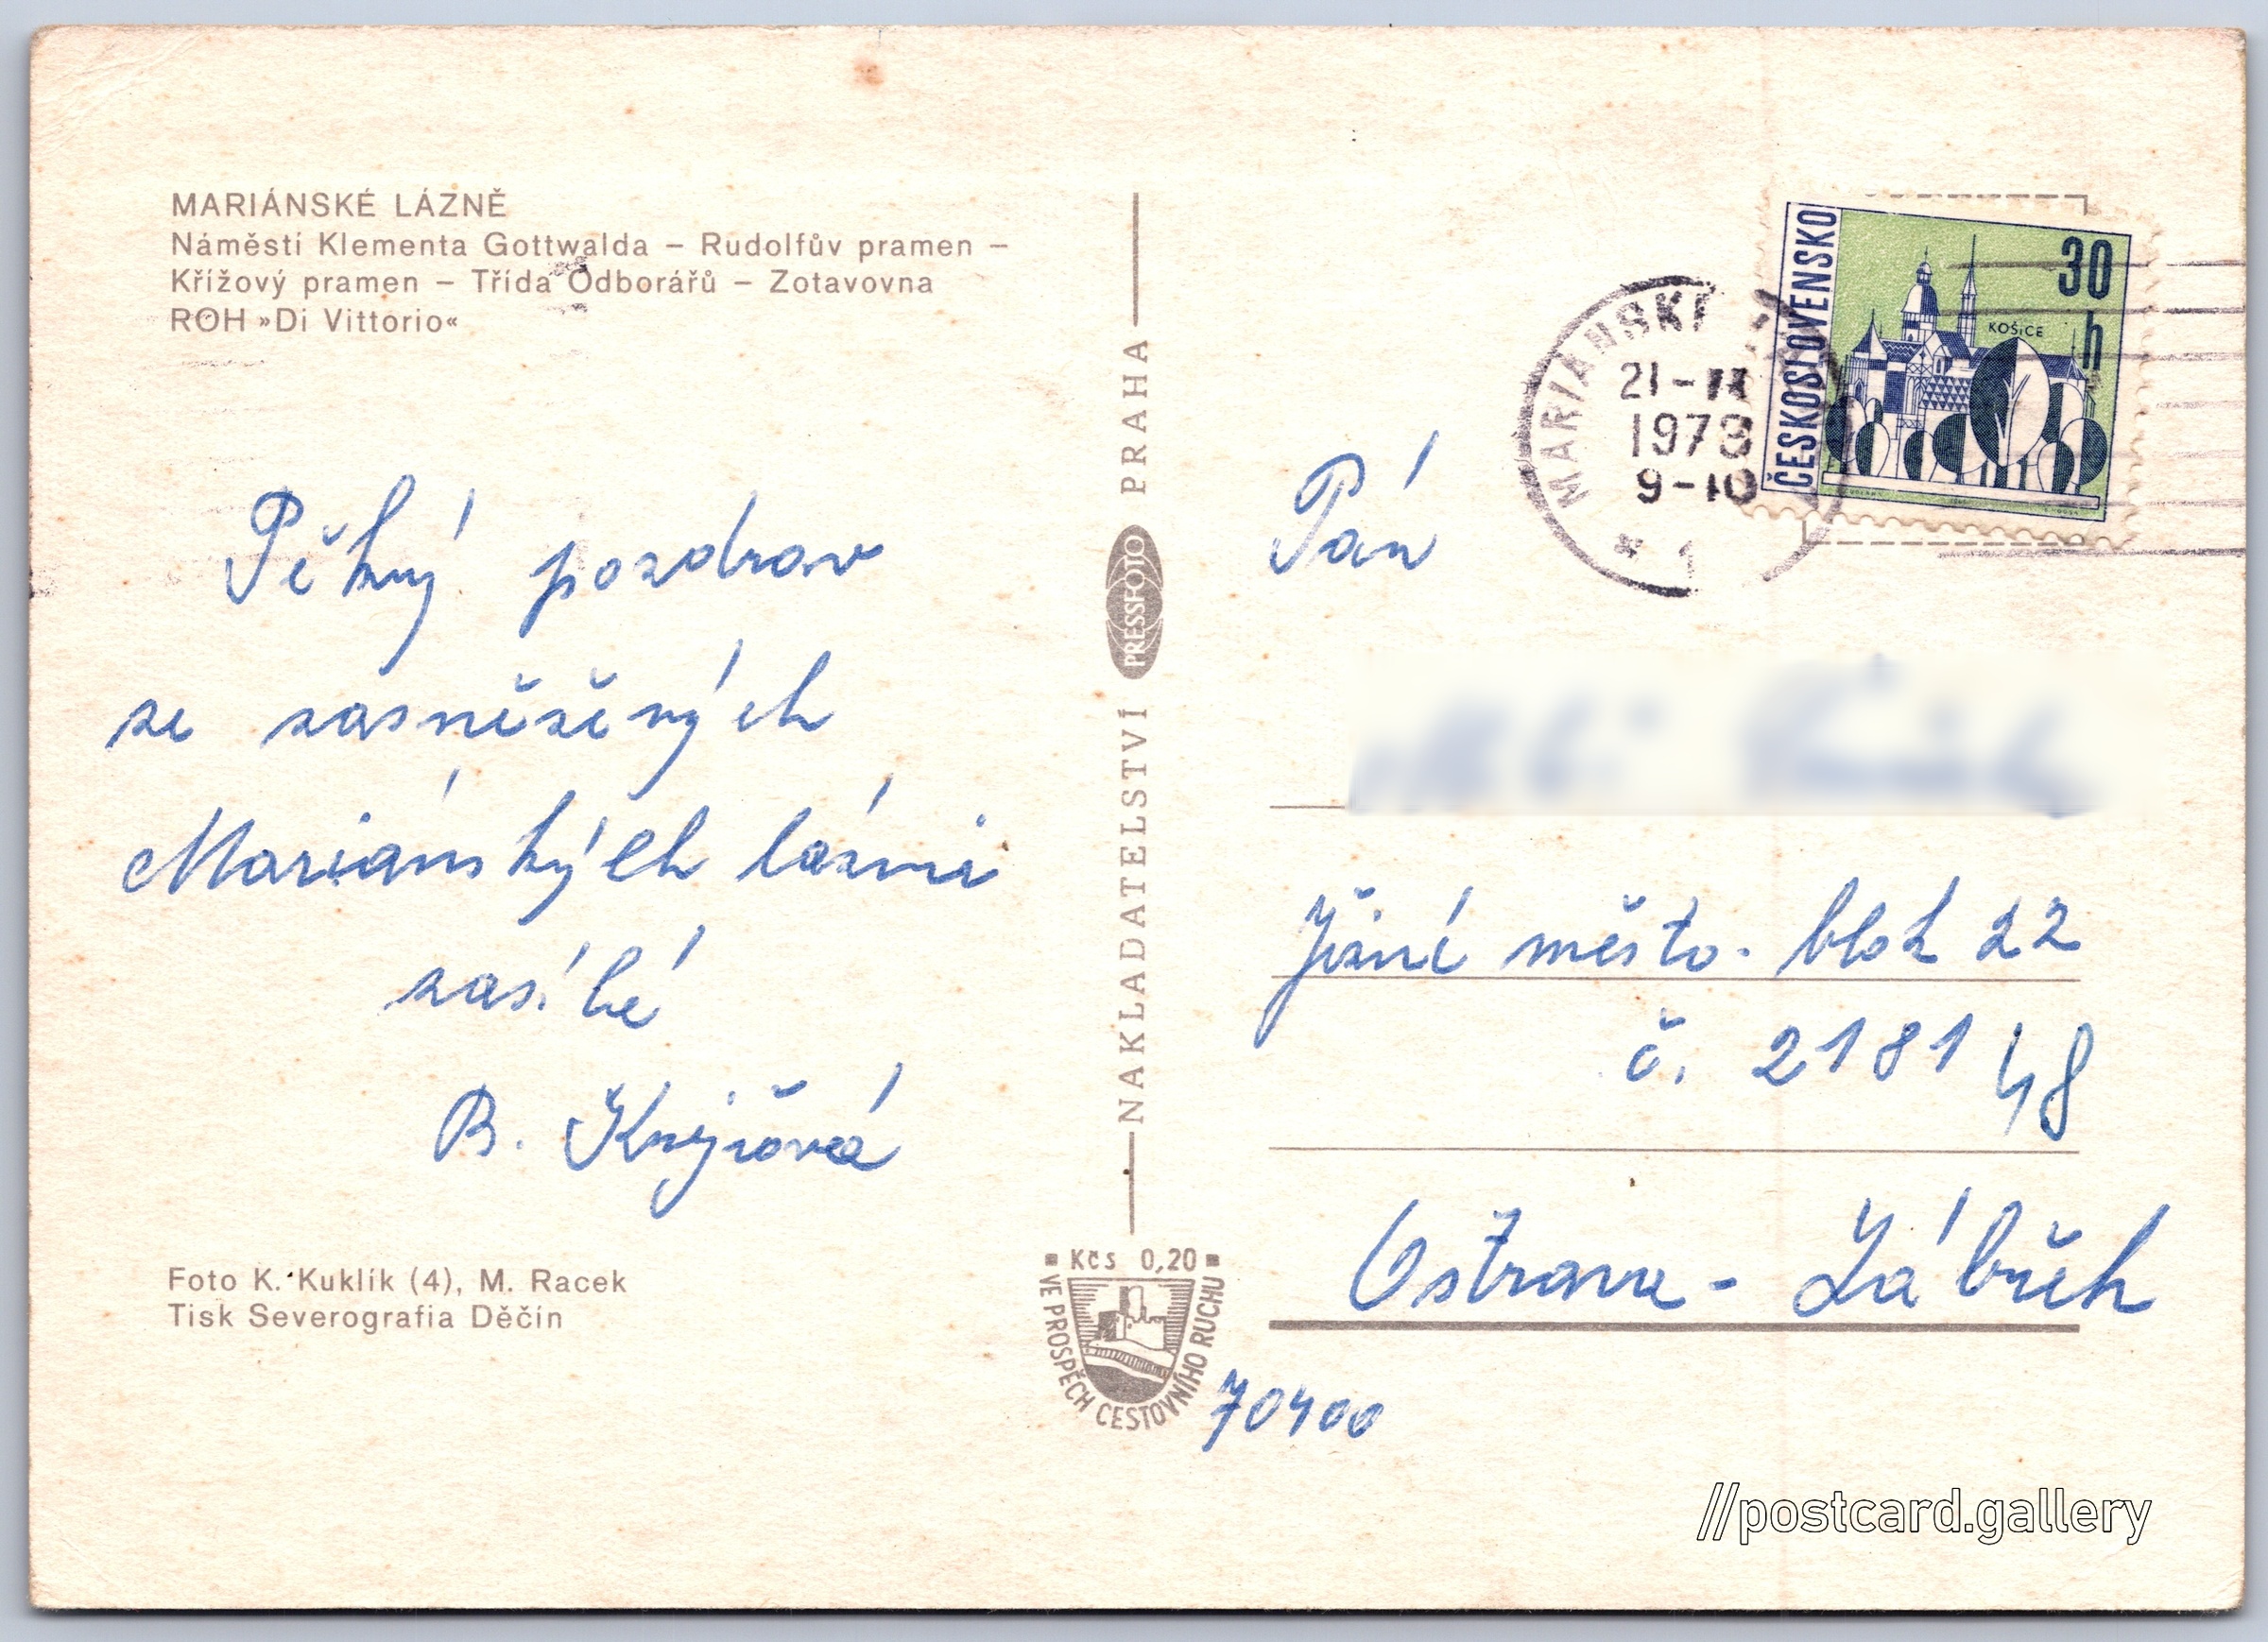 MARIÁNSKÉ LÁZNĚ
Náměstí Klementa Gottwalda – Rudolfův pramen –
Křížový pramen – Třída Odborářů – Zotavovna
ROH »Di Vittorio«
Pěkný pozdrav
ze zasněžených
Mariánských lázní
zasílá
B.
Foto K. Kuklík (4), M. Racek
Tisk Severografia Děčín
NAKLADATELSTVÍ PRESSFOTO PRAHA
Kčs 0,20
VE PROSPĚCH CESTOVNÍHO RUCHU
ČESKOSLOVENSKO
30
h
KOŠICE
MARIÁNSKÉ
21-
1973
9-10
1
Pán
Jižní město. blok 22
č. 2181
Ostrava - Zábřeh
70400
//postcard.gallery